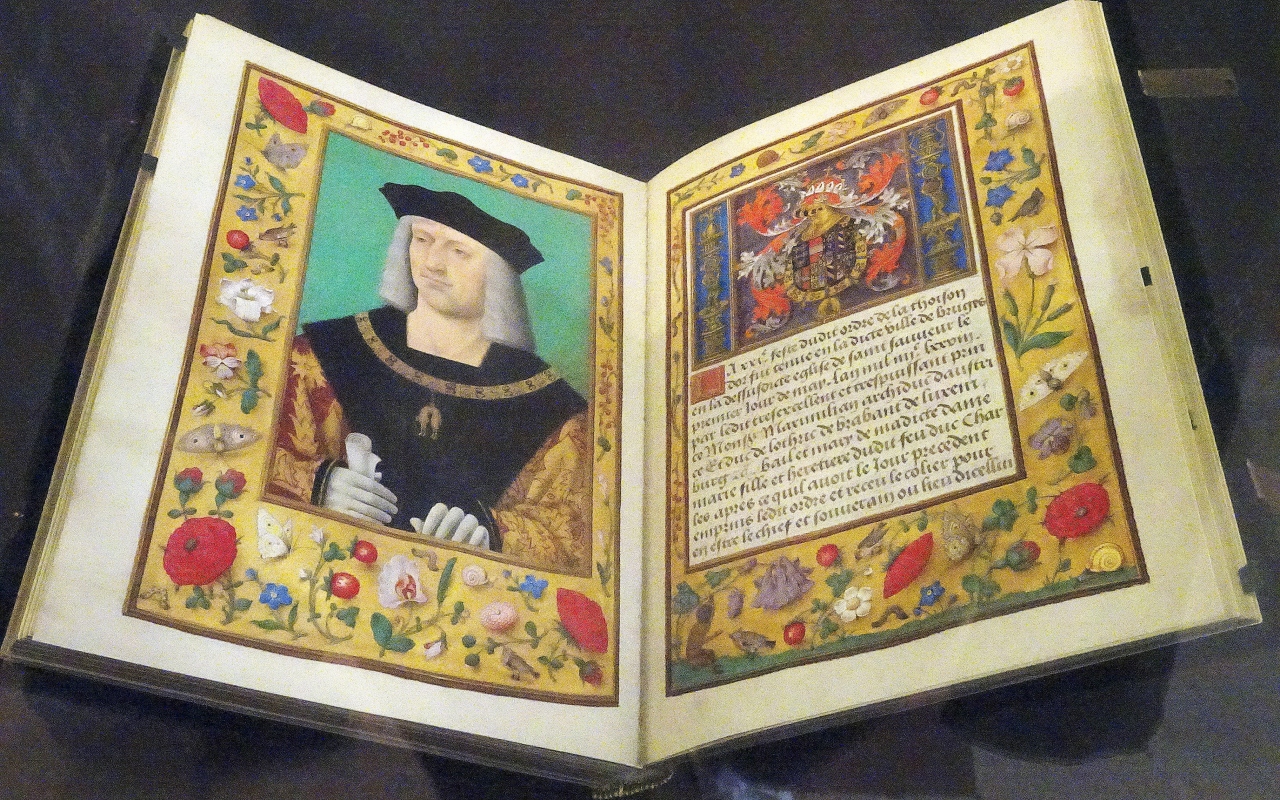 La xxv.e feste dudit ordre de la thoison
dor fut tenue en la dicte ville de bruges
en la dessusdicte eglise de saint sauueur le
premier Jour de may. Lan mil iiii.c lxxviij.
par ledit tresexcellent et trespuissant prin
ce Mons.r Maximilian archiduc daustri
ce Et duc de lothric de brabant de luxem
burg bail et mary de madicte dame
marie fille et heretiere dudit feu duc Char
les apres ce quil auoit le Jour precedent
emprins ledit ordre et receu le colier pour
en estre le chief et souuerain ou lieu dicellui